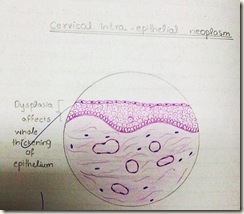 Cervical intra-epithelial neoplasm
Dysplasia
affects
whole
thickening
of
epithelium